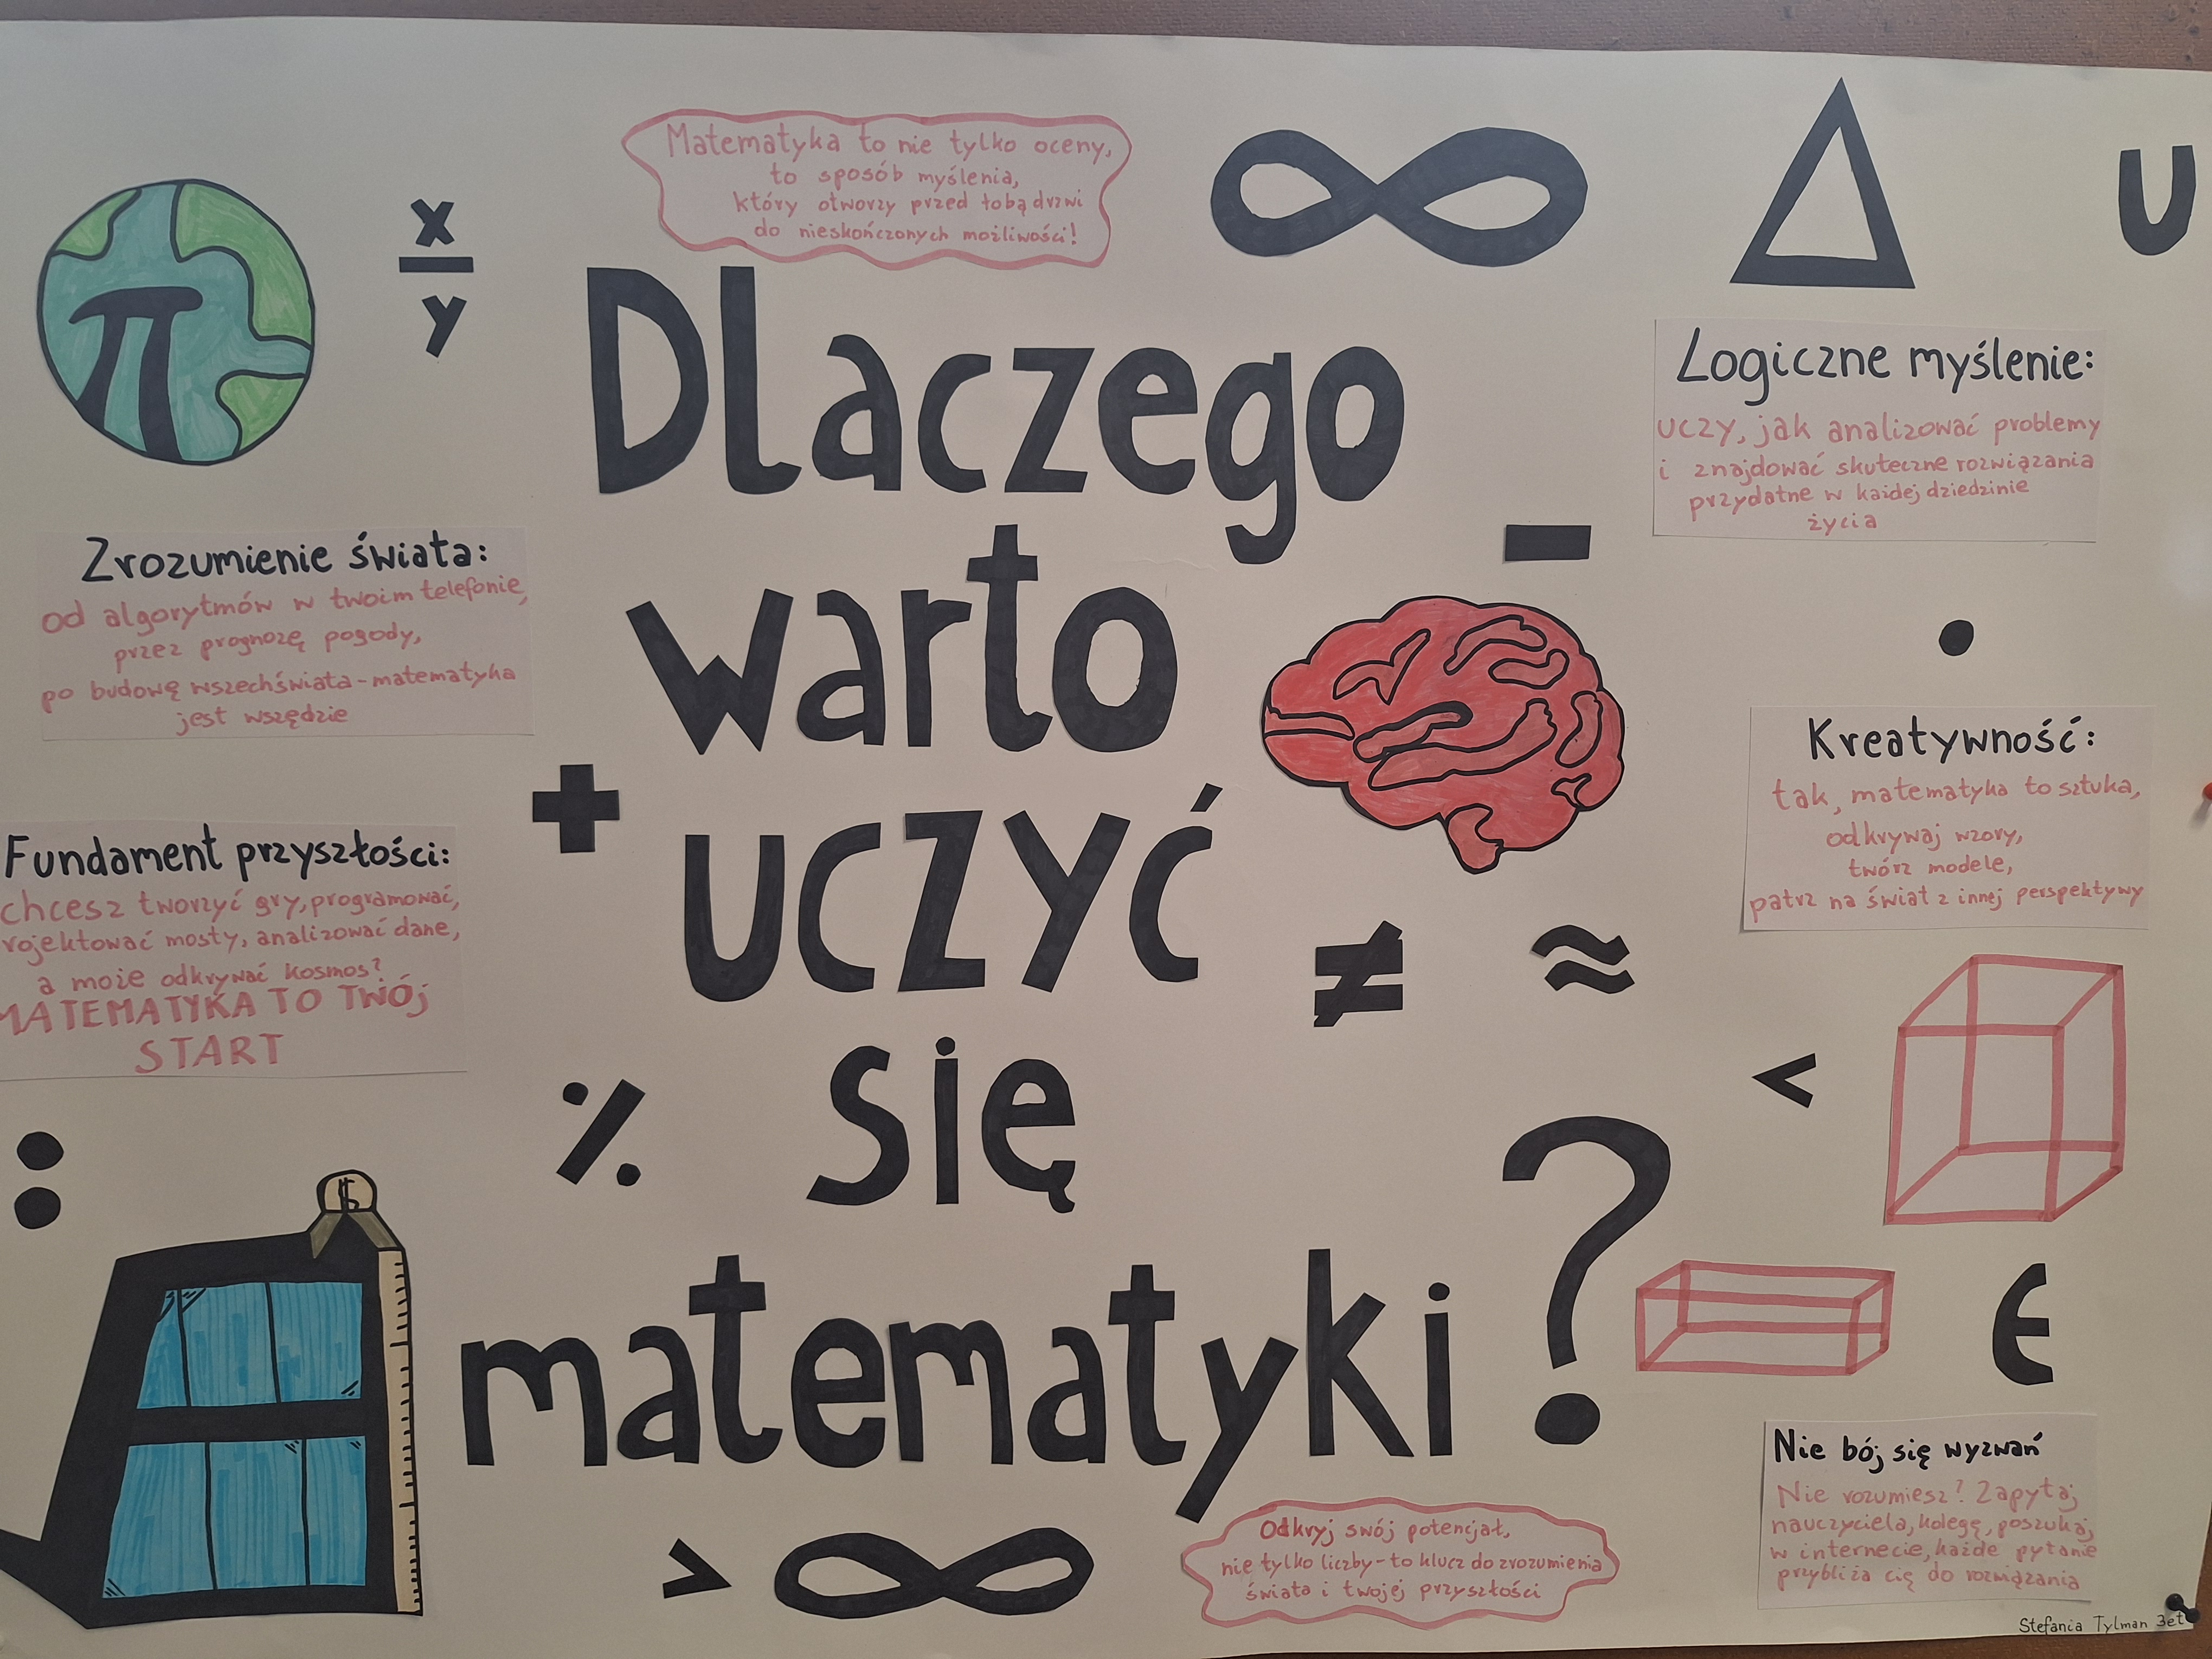 Matematyka to nie tylko oceny,
to sposób myślenia,
który otworzy przed tobą drzwi
do nieskończonych możliwości!
∞
Δ
U
π
x
y
Dlaczego
warto
uczyć
się
matematyki?
Logiczne myślenie:
uczy, jak analizować problemy
i znajdować skuteczne rozwiązania
przydatne w każdej dziedzinie
życia
Zrozumienie świata:
od algorytmów w twoim telefonie,
przez prognozę pogody,
po budowę wszechświata - matematyka
jest wszędzie
-
•
Kreatywność:
tak, matematyka to sztuka,
odkrywaj wzory,
twórz modele,
patrz na świat z innej perspektywy
+
Fundament przyszłości:
chcesz tworzyć gry, programować,
rojektować mosty, analizować dane,
a może odkrywać kosmos?
MATEMATYKA TO TWÓj
START
≠ ≈
<
%
:
$
€
Nie bój się wyzwań
Nie rozumiesz? Zapytaj
nauczyciela, kolegę, poszukaj
w internecie, każde pytanie
przybliża cię do rozwiązania
> ∞
Odkryj swój potencjał,
nie tylko liczby - to klucz do zrozumienia
świata i twojej przyszłości
Stefania Tylman 3et